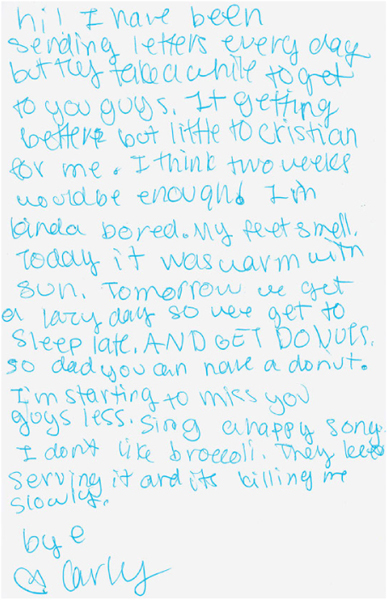 hi! I have been
sending letters every day
but they take a while to get
to you guys. It getting
better but little to cristian
for me. I think two weeks
would be enough! I'm
kinda bored. My feet smell.
Today it was warm with
sun. Tomorrow we get
a lazy day so we get to
sleep late. AND GET DONUTS.
so dad you can have a donut.
I'm starting to miss you
guys less. Sing a happy song.
I don't like broccoli. They keep
serving it and its killing me
slowly.
bye
♡ Carly